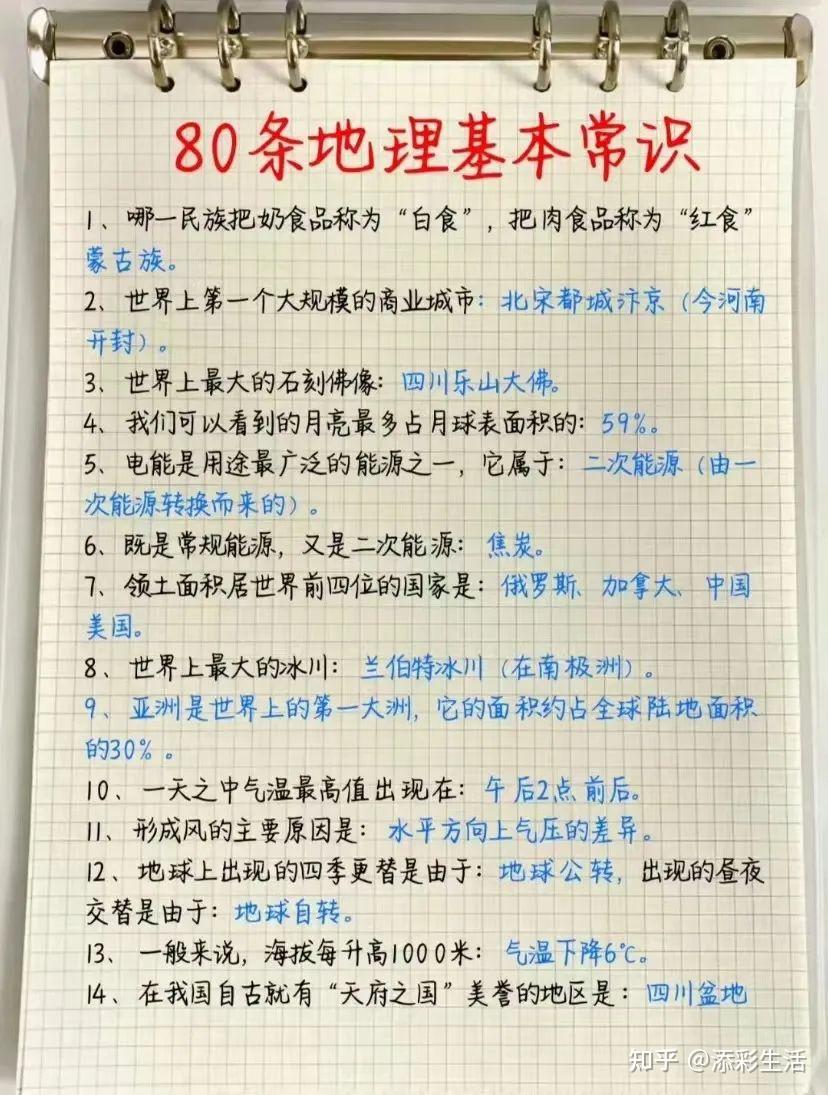 80条地理基本常识
1、哪一民族把奶食品称为“白食”，把肉食品称为“红食”
蒙古族。
2、世界上第一个大规模的商业城市：北宋都城汴京（今河南
开封）。
3、世界上最大的石刻佛像：四川乐山大佛。
4、我们可以看到的月亮最多占月球表面积的：59%。
5、电能是用途最广泛的能源之一，它属于：二次能源（由一
次能源转换而来的）。
6、既是常规能源，又是二次能源：焦炭。
7、领土面积居世界前四位的国家是：俄罗斯、加拿大、中国
美国。
8、世界上最大的冰川：兰伯特冰川（在南极洲）。
9、亚洲是世界上的第一大洲，它的面积约占全球陆地面积
的30%。
10、一天之中气温最高值出现在：午后2点前后。
11、形成风的主要原因是：水平方向上气压的差异。
12、地球上出现的四季更替是由于：地球公转，出现的昼夜
交替是由于：地球自转。
13、一般来说，海拔每升高1000米：气温下降6℃。
14、在我国自古就有“天府之国”美誉的地区是：四川盆地
知乎 @添彩生活